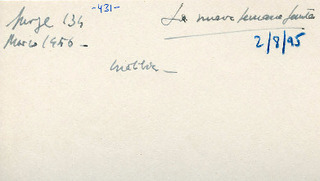 -431-
Surge 134
Marzo 1956 -
La nueva semana santa
2/8/95